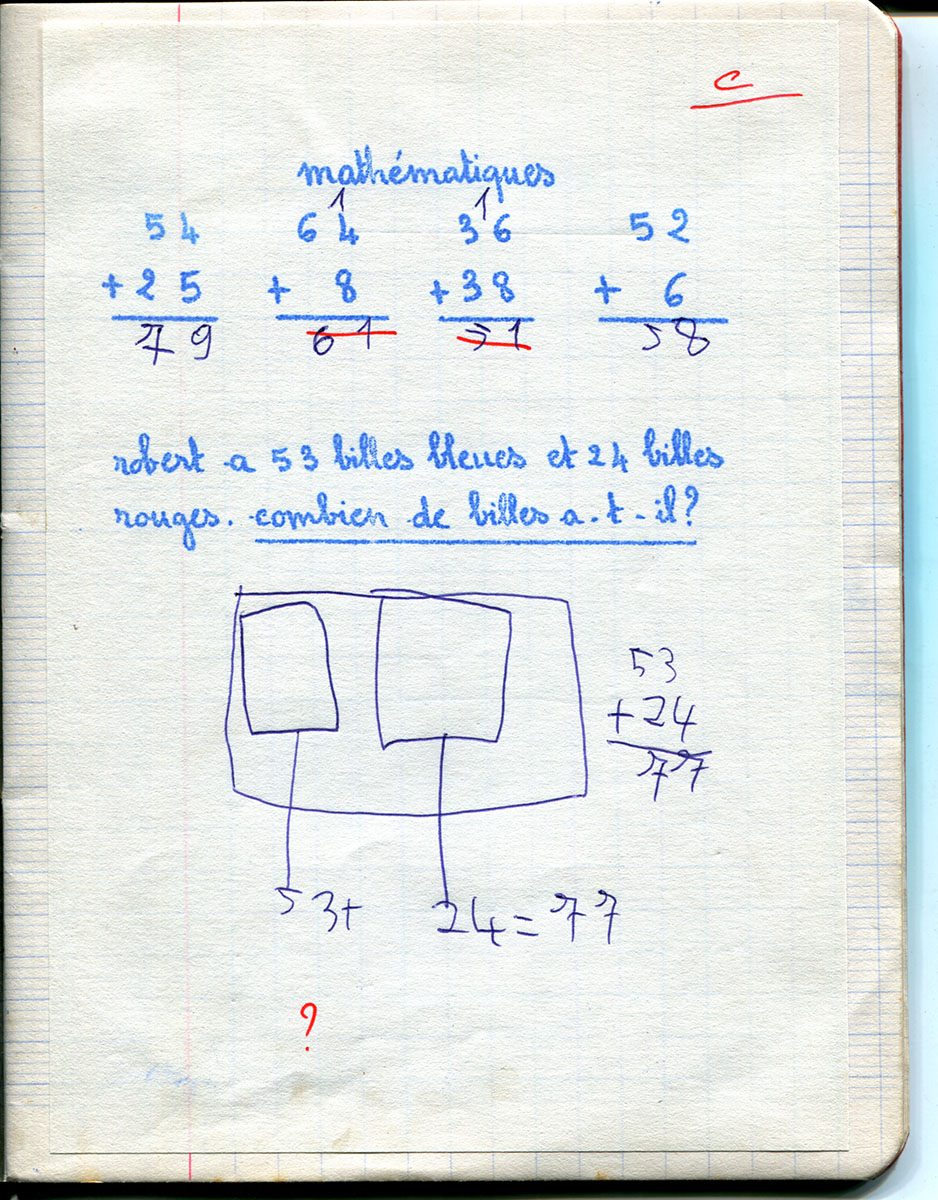 c
mathématiques
1 1
54 64 36 52
+25 + 8 +38 + 6
79 61 51 58
robert a 53 billes bleues et 24 billes
rouges. combien de billes a-t-il?
53
+24
77
53+ 24=77
?